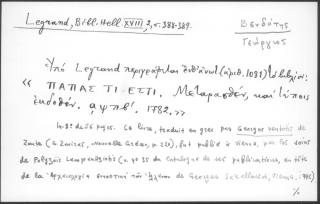 Legrand, Bibl. Hell. XVIII, 2, σ. 388-389.
Βενδότης
Γεώργιος
Ὑπὸ Legrand περιγράφεται (ἀριθ. 1081) τὸ βιβλίον:
« ΠΑΠΑΣ ΤΙ ΕΣΤΙ. Μεταφρασθέν, καὶ τύποις
ἐκδοθέν. αψπβ'. 1782. »
In-8º de 56 pages. Ce livre, traduit en grec par Georges Ventotis de
Zante (G. Zaviras, Nouvelle Grèce, p. ), fut publié à Vienne, par les soins
de Polyzois Lampanitziotis (v. nº 35 du catalogue de ses publications, en tête
de la de Georges Sakellarios, Vienne, )